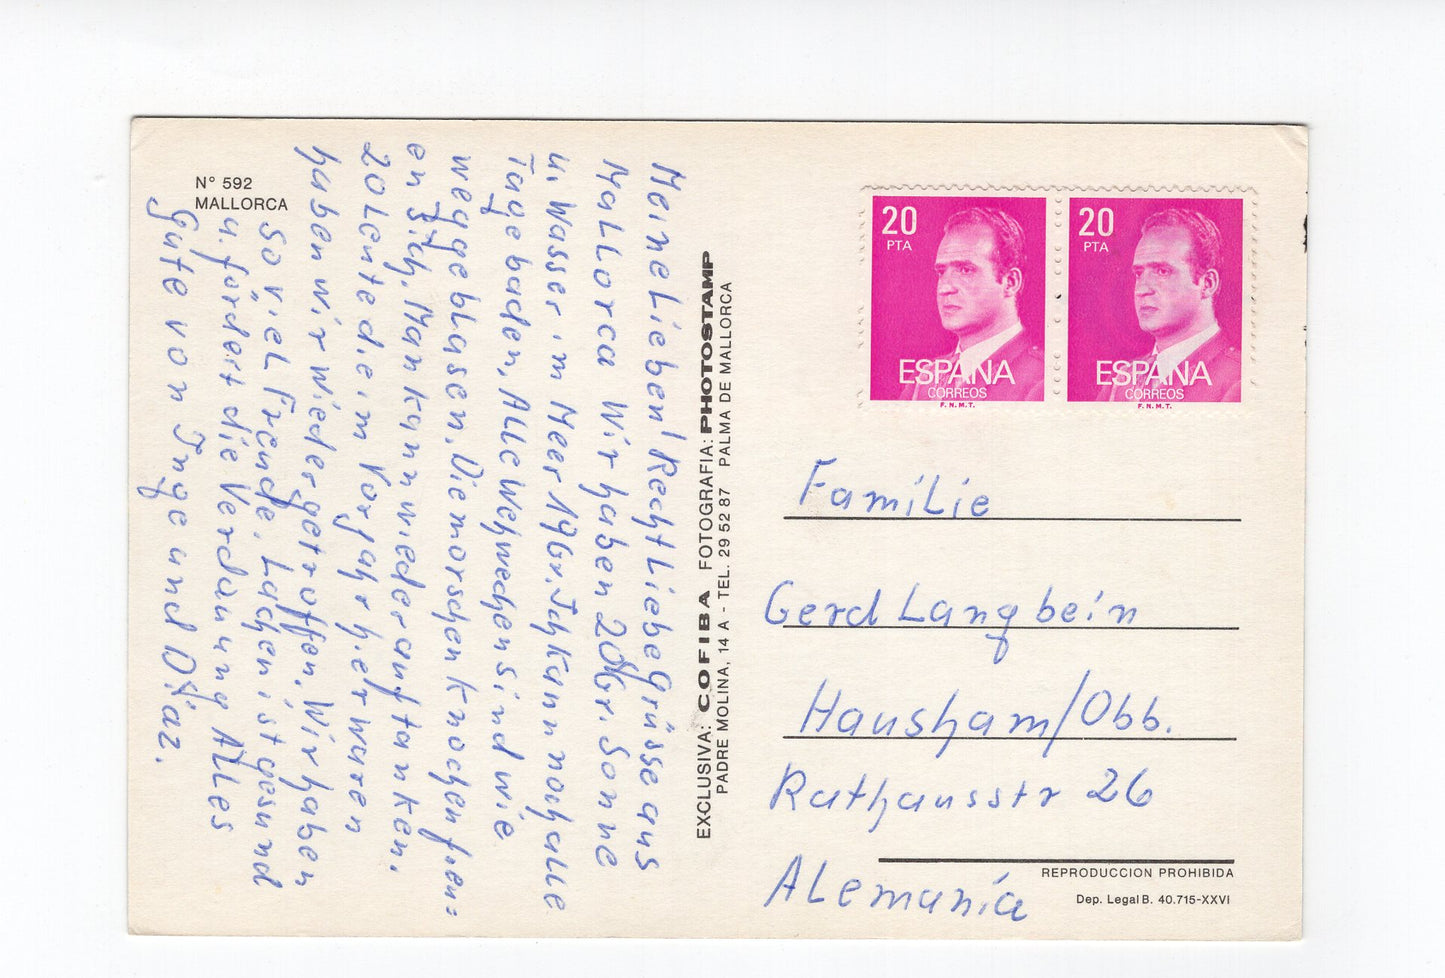 N° 592
MALLORCA
Meine Lieben! Recht Liebe Grüsse aus
Mallorca Wir haben 26 Gr. Sonne
u. Wasser im Meer 19 Gr. Ich kann noch alle
Tage baden, Alle Wehwechen sind wie
weggeblasen. Die morschen Knochen freu=
en sich, Man kann wieder auftanken.
20 Leute die im Vorjahr hier waren
haben wir wieder getroffen. Wir haben
so viel Freude, Lachen ist gesund
u. fördert die Verdauung Alles
Gute von Inge und Diaz.
EXCLUSIVA: COFIBA FOTOGRAFIA: PHOTOSTAMP
PADRE MOLINA, 14 A - TEL. 29 52 87 PALMA DE MALLORCA
20
PTA
ESPAÑA
CORREOS
F.N.M.T.
20
PTA
ESPAÑA
CORREOS
F.N.M.T.
Familie
Gerd Langbein
Hausham/Obb.
Rathausstr 26
Alemanía
REPRODUCCION PROHIBIDA
Dep. Legal B. 40.715-XXVI